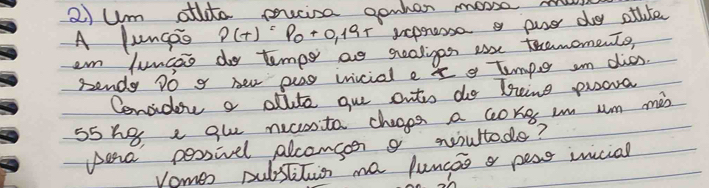 2) Um atleta precisa ganhar massa
A função P(t) = P0 + 0,19t expressa o peso do atleta
em função do tempo ao realizar esse treinamento,
sendo P0 o seu peso inicial e t o tempo em dias.
Considere o atleta que antes do treino pesava
55 kg e que necessita chegar a 60 kg em um mês
será possível alcançar o resultado?
Vamos substituir na função o peso inicial